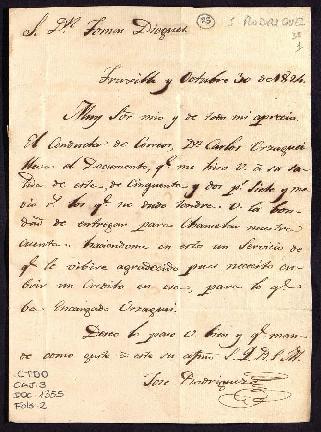 S. Dn. Tomas Dieguez
25
J. RODRIGUEZ
Truxillo y Octubre 30 de 1824.
Muy Sor mio y de toda mi aprecio.
El Conductor de Correos, Dn Carlos
lleva el Documento, qe me hizo V. a su sa-
lida de esta, de cinquenta y dos ps siete y me-
dio rs los qe no dudo tendra V. la bon-
dad de entregar para Chancelar nuestra
cuenta. haciendome en esto un servicio de
qe le vivire agradecido pues necesito
un Credito en esa, para lo qe
Encargado
Deseo lo pase V. bien y qe man-
de como guste a este su afmo S. Q. B. S. M.
Jose Rodriguez
CTDO
CAJ: 3
DOC: 1355
FOLS: 2